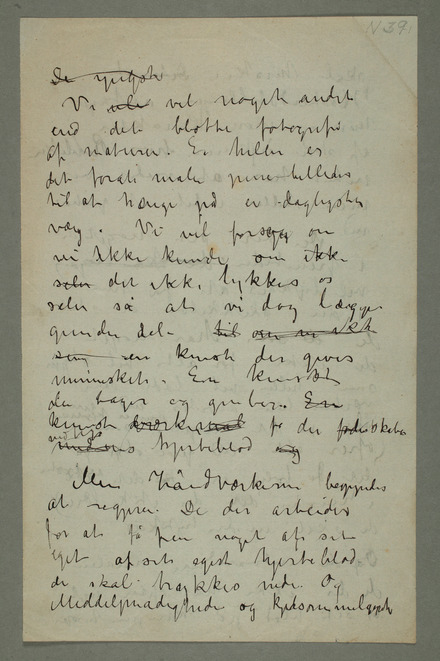 N 39
De
Vi vil noget andet
end det blotte fotografi
af naturen. Ei heller er
det forati male pene billeder
til at hænge på en dagligstu
væg. Vi vil forsøge om
vi ikke kunde om ikke
selv det ikke lykkes os
selv så at vi dog lægger
grunden del til om vi ikk
en kunst der gives
mennisket. En kunst
der tager og griber. En
kunst der
ens hjerteblod og
Men Håndværkerne begyndes
at regjere. De der arbeider
for at få frem noget afs sit
eget af sit eget hjerteblod
de skal trykkes ned. Og
Middelmådighede og